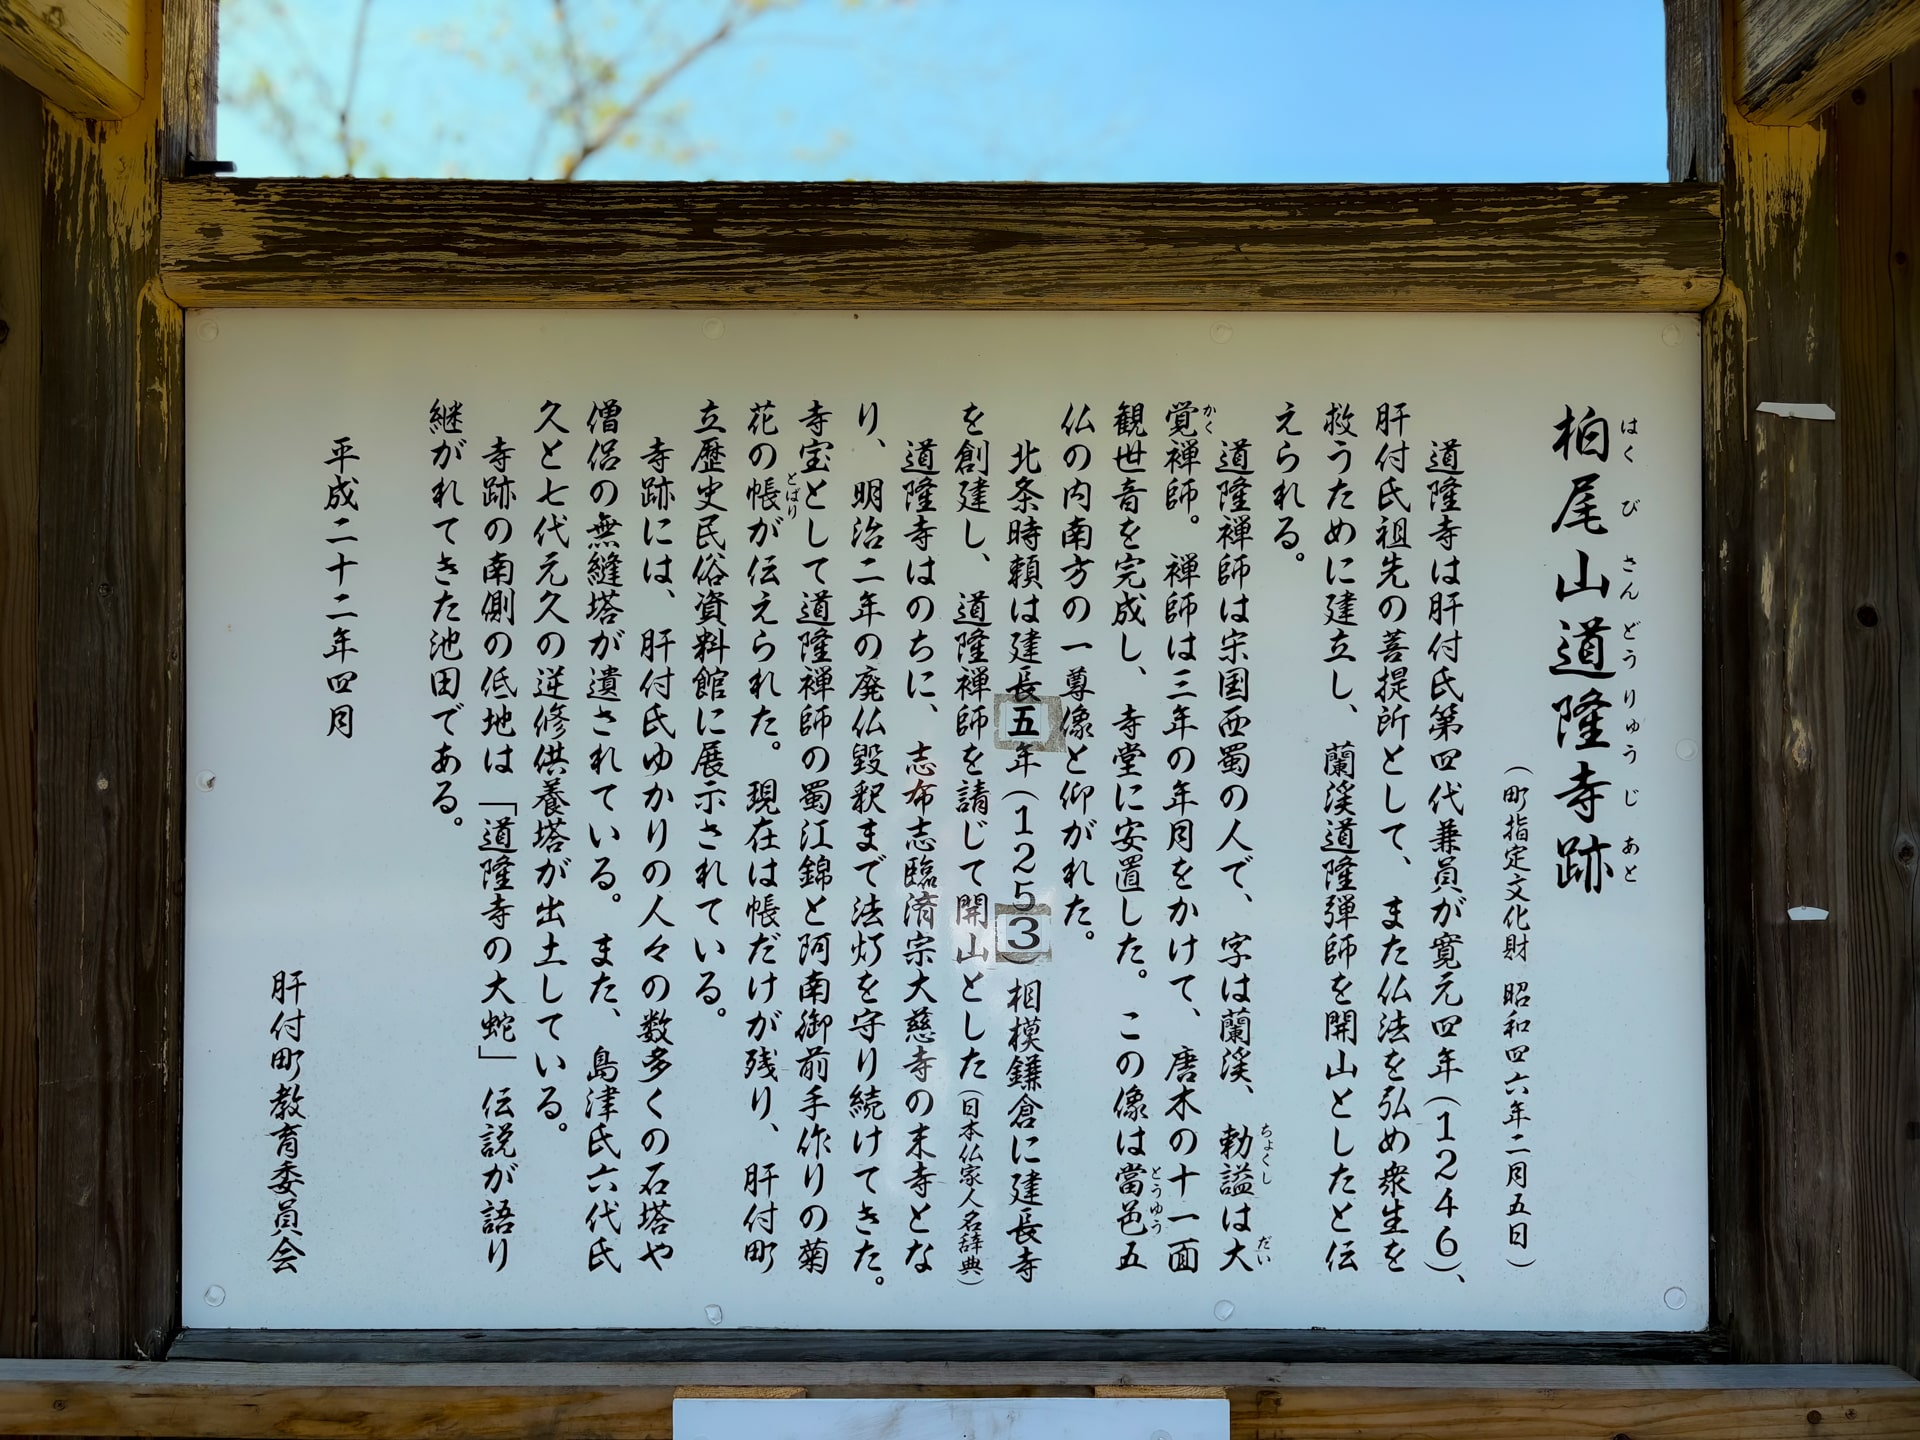 柏尾山道隆寺跡
はくびさんどうりゅうじあと
(町指定文化財 昭和四六年二月五日)
道隆寺は肝付氏第四代兼員が寛元四年(1246)、
肝付氏祖先の菩提所として、また仏法を弘め衆生を
救うために建立し、蘭渓道隆弾師を開山としたと伝
えられる。
道隆禅師は宗国西蜀の人で、字は蘭渓、勅諡は大
ちょくし だい
覚禅師。禅師は三年の年月をかけて、唐木の十一面
かく
観世音を完成し、寺堂に安置した。この像は當邑五
とうゆう
仏の内南方の一尊像と仰がれた。
北条時頼は建長五年(1253)相模鎌倉に建長寺
を創建し、道隆禅師を請じて開山とした(日本仏家人名辞典)
道隆寺はのちに、志布志臨済宗大慈寺の末寺とな
り、明治二年の廃仏毀釈まで法灯を守り続けてきた。
寺宝として道隆禅師の蜀江錦と阿南御前手作りの菊
花の帳が伝えられた。現在は帳だけが残り、肝付町
とばり
立歴史民俗資料館に展示されている。
寺跡には、肝付氏ゆかりの人々の数多くの石塔や
僧侶の無縫塔が遺されている。また、島津氏六代氏
久と七代元久の逆修供養塔が出土している。
寺跡の南側の低地は「道隆寺の大蛇」伝説が語り
継がれてきた池田である。
平成二十二年四月
肝付町教育委員会